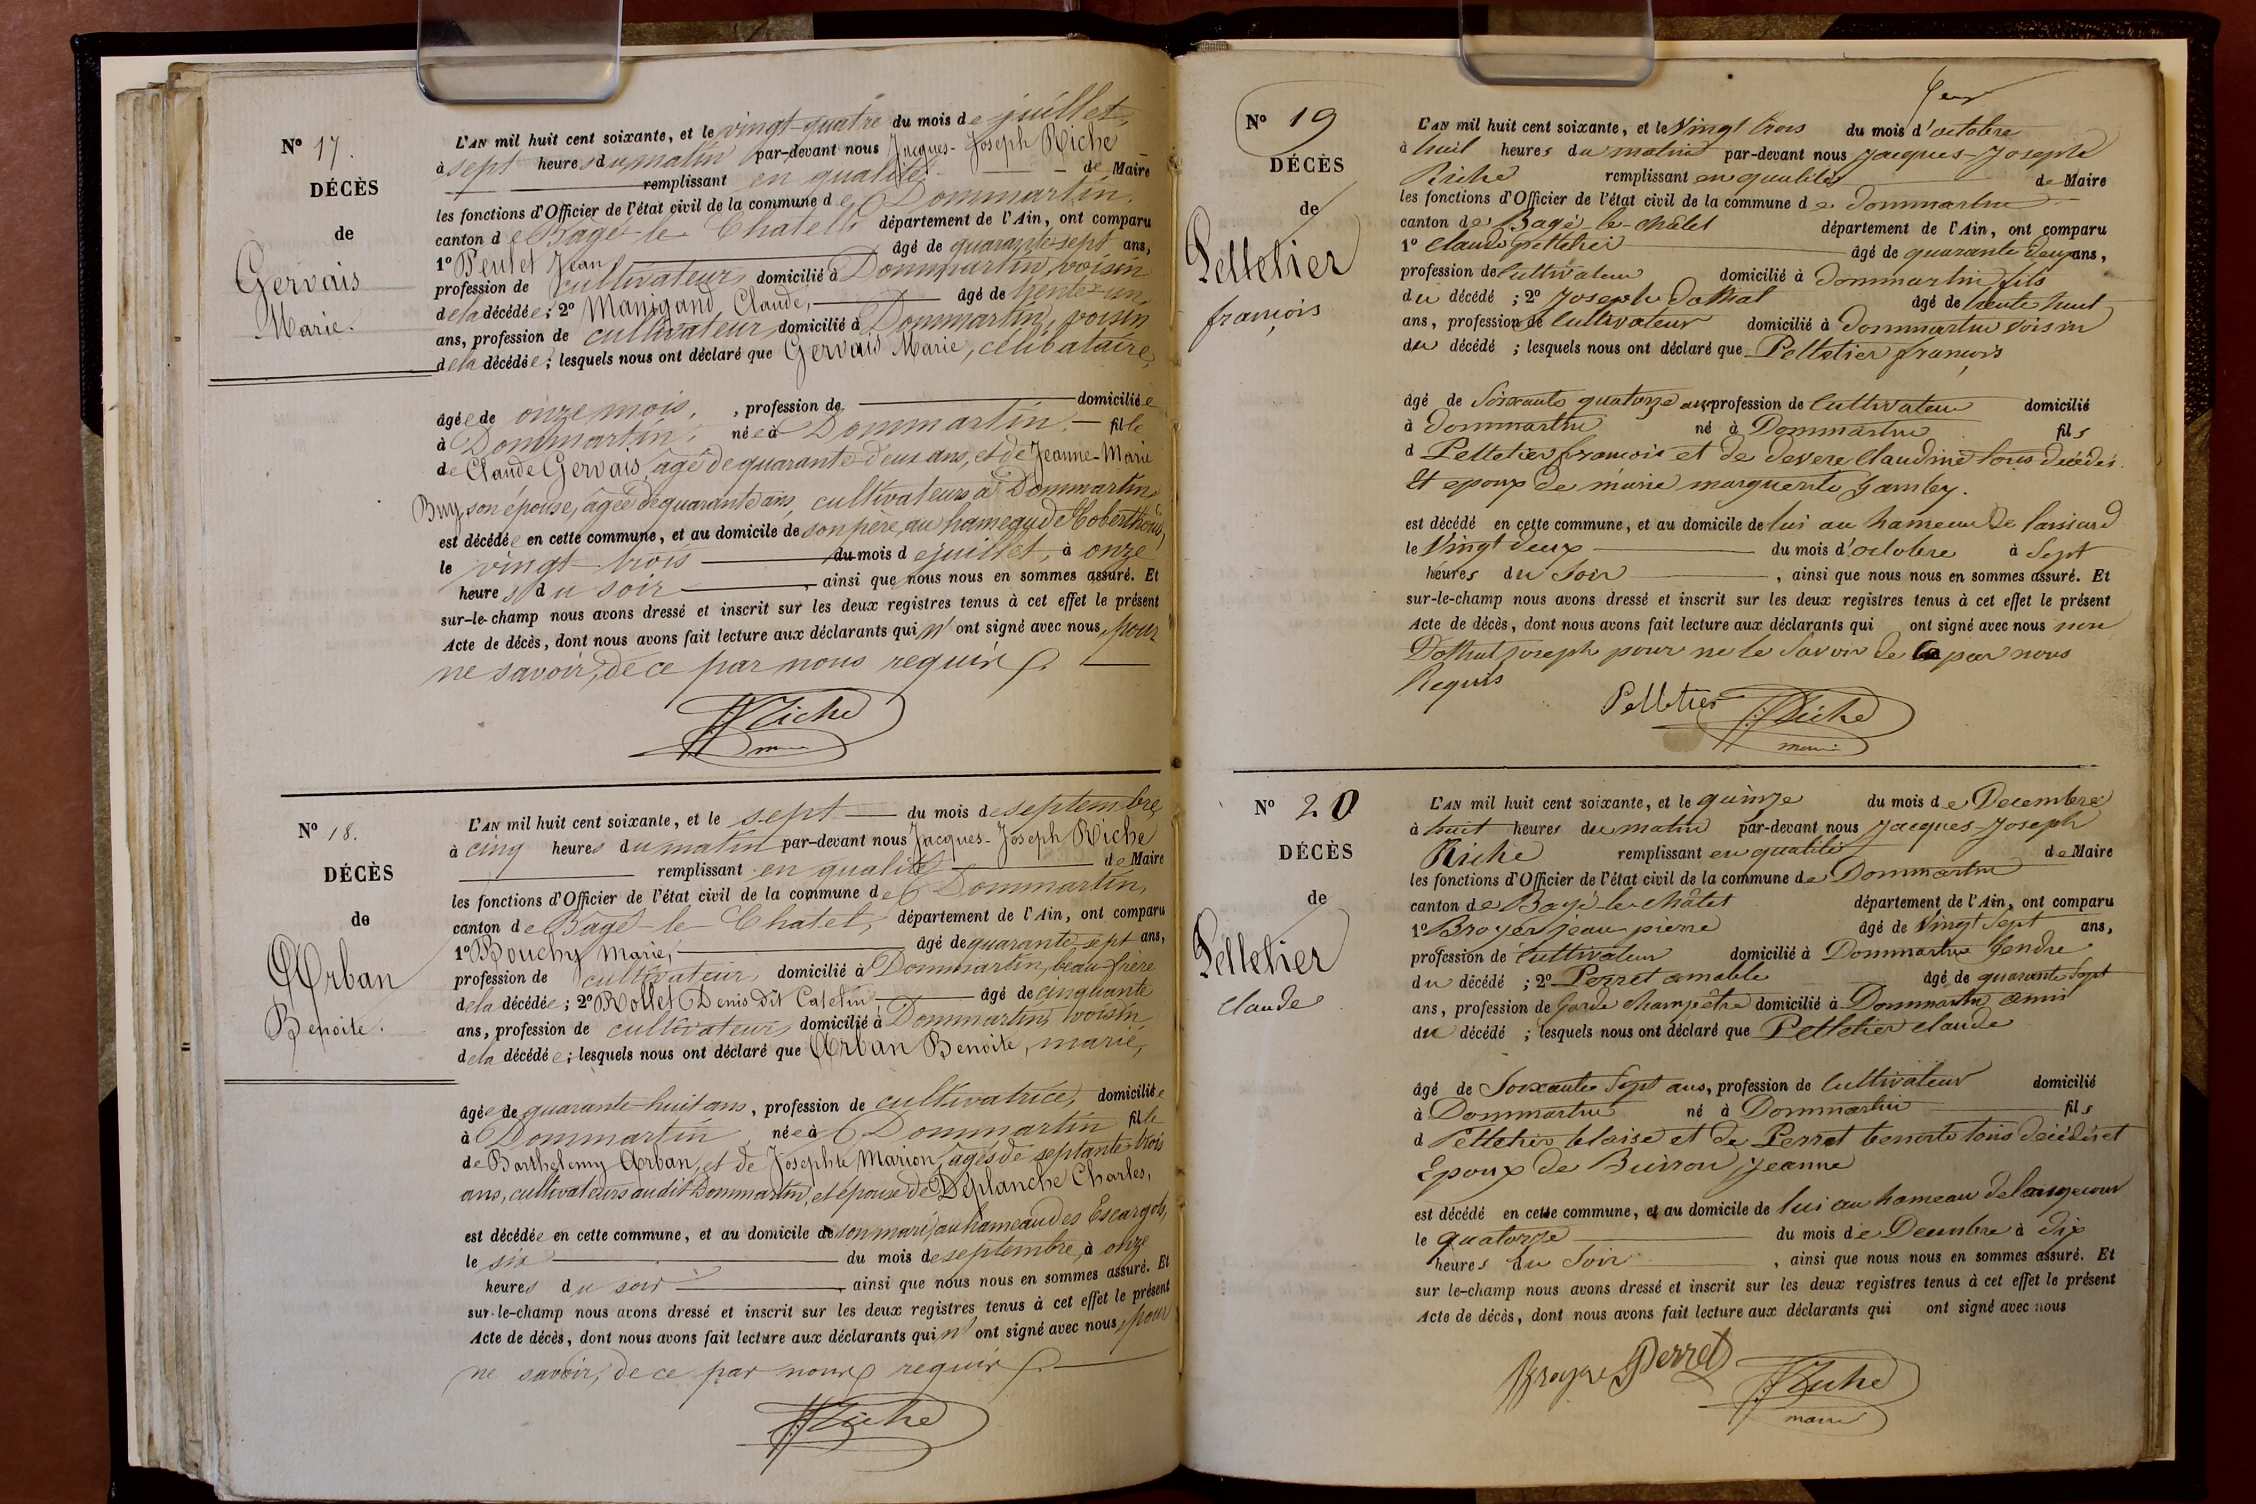 N° 17.
DÉCÈS
de
Gervais
Marie.
L'AN mil huit cent soixante, et le vingt-quatre du mois de juillet,
à sept heures du matin par-devant nous Jacques-Joseph Riche
remplissant en qualité de Maire
les fonctions d'Officier de l'état civil de la commune de Dommartin,
canton de Bagé-le-Chatel département de l'Ain, ont comparu
1° Jean âgé de quarante-sept ans,
profession de cultivateur, domicilié à Dommartin, voisin
de la décédée; 2° Manigand Claude, âgé de trente-un
ans, profession de cultivateur, domicilié à Dommartin, voisin
de la décédée; lesquels nous ont déclaré que Gervais Marie, célibataire,
âgée de onze mois, , profession de domiciliée
à Dommartin, née à Dommartin, fille
de Claude Gervais, âgé de quarante-deux ans, et de Jeanne-Marie
Buy son épouse, âgée de quarante ans, cultivateurs à Dommartin,
est décédée en cette commune, et au domicile de son père, au hameau de
le vingt-trois du mois de juillet, à onze
heures du soir , ainsi que nous nous en sommes assuré. Et
sur-le-champ nous avons dressé et inscrit sur les deux registres tenus à cet effet le présent
Acte de décès, dont nous avons fait lecture aux déclarants qui n'ont signé avec nous, pour
ne savoir, de ce par nous requis
JJ Riche
N° 18.
DÉCÈS
de
Arban
Benoite.
L'AN mil huit cent soixante, et le sept du mois de septembre,
à cinq heures du matin par-devant nous Jacques-Joseph Riche
remplissant en qualité de Maire
les fonctions d'Officier de l'état civil de la commune de Dommartin,
canton de Bagé-le-Chatel, département de l'Ain, ont comparu
1° Bouchy Marie, âgé de quarante-sept ans,
profession de cultivateur, domicilié à Dommartin, beau-frère
de la décédée; 2° Rollet Denis dit Catelin âgé de cinquante
ans, profession de cultivateur, domicilié à Dommartin, voisin
de la décédée; lesquels nous ont déclaré que Arban Benoite, marié,
âgée de quarante-huit ans, profession de cultivatrice, domiciliée
à Dommartin, née à Dommartin fille
de Barthélemy Arban, et de Josephte Marion, âgés de septante-trois
ans, cultivateurs audit Dommartin, et épouse de Déplanche Charles,
est décédée en cette commune, et au domicile de son mari, au hameau des Escargots,
le six du mois de septembre, à onze
heures du soir , ainsi que nous nous en sommes assuré. Et
sur-le-champ nous avons dressé et inscrit sur les deux registres tenus à cet effet le présent
Acte de décès, dont nous avons fait lecture aux déclarants qui n'ont signé avec nous, pour
ne savoir, de ce par nous requis
JJ Riche
N° 19
DÉCÈS
de
Pelletier
françois
L'AN mil huit cent soixante, et le Vingt trois du mois d'octobre
à huit heures du matin par-devant nous Jacques-Joseph
Riche remplissant en qualité de Maire
les fonctions d'Officier de l'état civil de la commune de Dommartin
canton de Bagé-le-châtel département de l'Ain, ont comparu
1° Claude pelletier âgé de quarante deux ans,
profession de Cultivateur domicilié à Dommartin fils
du décédé ; 2° Joseph âgé de trente huit
ans, profession de Cultivateur domicilié à Dommartin voisin
du décédé ; lesquels nous ont déclaré que Pelletier françois
âgé de Soixante quatorze ans profession de Cultivateur domicilié
à Dommartin né à Dommartin fils
d Pelletier françois et de devere Claudine tous décédés.
Et epoux de marie marguerite
est décédé en cette commune, et au domicile de lui au hameau de
le Vingt deux du mois d'octobre à Sept
heures du Soir , ainsi que nous nous en sommes assuré. Et
sur-le-champ nous avons dressé et inscrit sur les deux registres tenus à cet effet le présent
Acte de décès, dont nous avons fait lecture aux déclarants qui ont signé avec nous non
Joseph pour ne le Savoir de ce par nous
Requis
Pelletier JJ Riche
maire
N° 20
DÉCÈS
de
Pelletier
Claude
L'AN mil huit cent soixante, et le quinze du mois de Decembre
à huit heures du matin par-devant nous Jacques-Joseph
Riche remplissant en qualité de Maire
les fonctions d'Officier de l'état civil de la commune de Dommartin
canton de Bagé-le-châtel département de l'Ain, ont comparu
1° Broyer jean pierre âgé de Vingt Sept ans,
profession de Cultivateur domicilié à Dommartin Gendre
du décédé ; 2° Perret amable âgé de quarante Sept
ans, profession de Garde champêtre domicilié à Dommartin amis
du décédé ; lesquels nous ont déclaré que Pelletier Claude
âgé de Soixante Sept ans, profession de Cultivateur domicilié
à Dommartin né à Dommartin fils
d Pelletier blaise et de Perret benoite tous décédés et
Epoux de Buiron jeanne
est décédé en cette commune, et au domicile de lui au hameau
le quatorze du mois de Decembre à dix
heures du Soir , ainsi que nous nous en sommes assuré. Et
sur le-champ nous avons dressé et inscrit sur les deux registres tenus à cet effet le présent
Acte de décès, dont nous avons fait lecture aux déclarants qui ont signé avec nous
Broyer Perret JJ Riche
maire